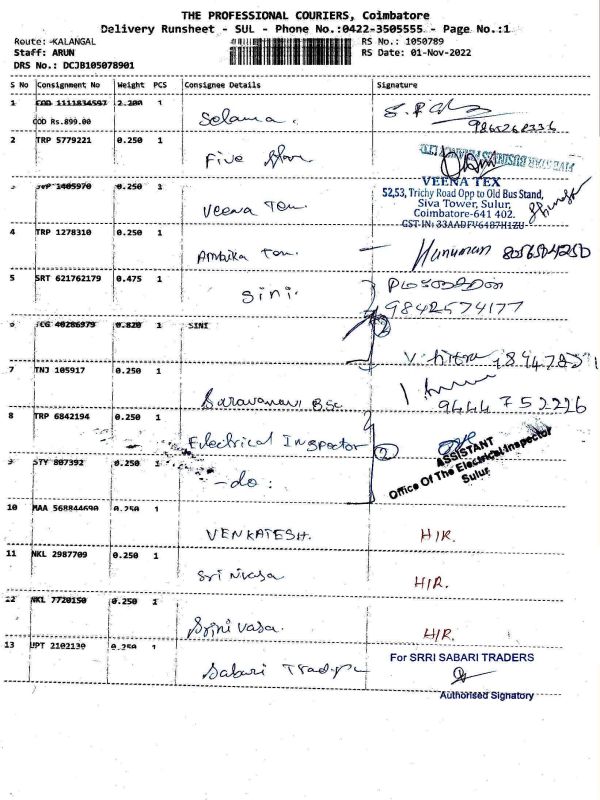 THE PROFESSIONAL COURIERS, Coimbatore
Delivery Runsheet - SUL - Phone No.:0422-3505555 - Page No.:1
Route: -KALANGAL
RS No.: 1050789
Staff: ARUN
RS Date: 01-Nov-2022
DRS No.: DCJB105078901
S No Consignment No Weight PCS Consignee Details Signature
1 COD 1111834597 2.200 1
COD Rs.899.00
Selama.
2 TRP 5779221 0.250 1
Five Star
1405970 0.250 1
Veena Tex.
VEENA TEX
52,53, Trichy Road Opp to Old Bus Stand,
Siva Tower, Sulur,
Coimbatore-641 402.
GST-IN: 33AADFV6487H1ZU
4 TRP 1278310 0.250 1
Ambika Tex.
Hanuman
5 SRT 621762179 0.475 1
Sini.
9842574177
6 JCG 40286979 0.820 1 SINI
2
7 TNJ 105917 0.250 1
Saravanan, BSc
9444752226
8 TRP 6842194 0.250 1
Electrical Inspector
2
ASSISTANT
Office Of The Electrical Inspector
Sulur
9 STY 807392 0.250 1
-do:
10 MAA 568844690 0.250 1
VENKATESH.
H/R.
11 NKL 2987709 0.250 1
Sri Nivasa
H/R.
12 NKL 7720150 0.250 1
Srinivasa.
H/R.
13 UPT 2102130 0.250 1
Sabari Traders
For SRRI SABARI TRADERS
Authorised Signatory